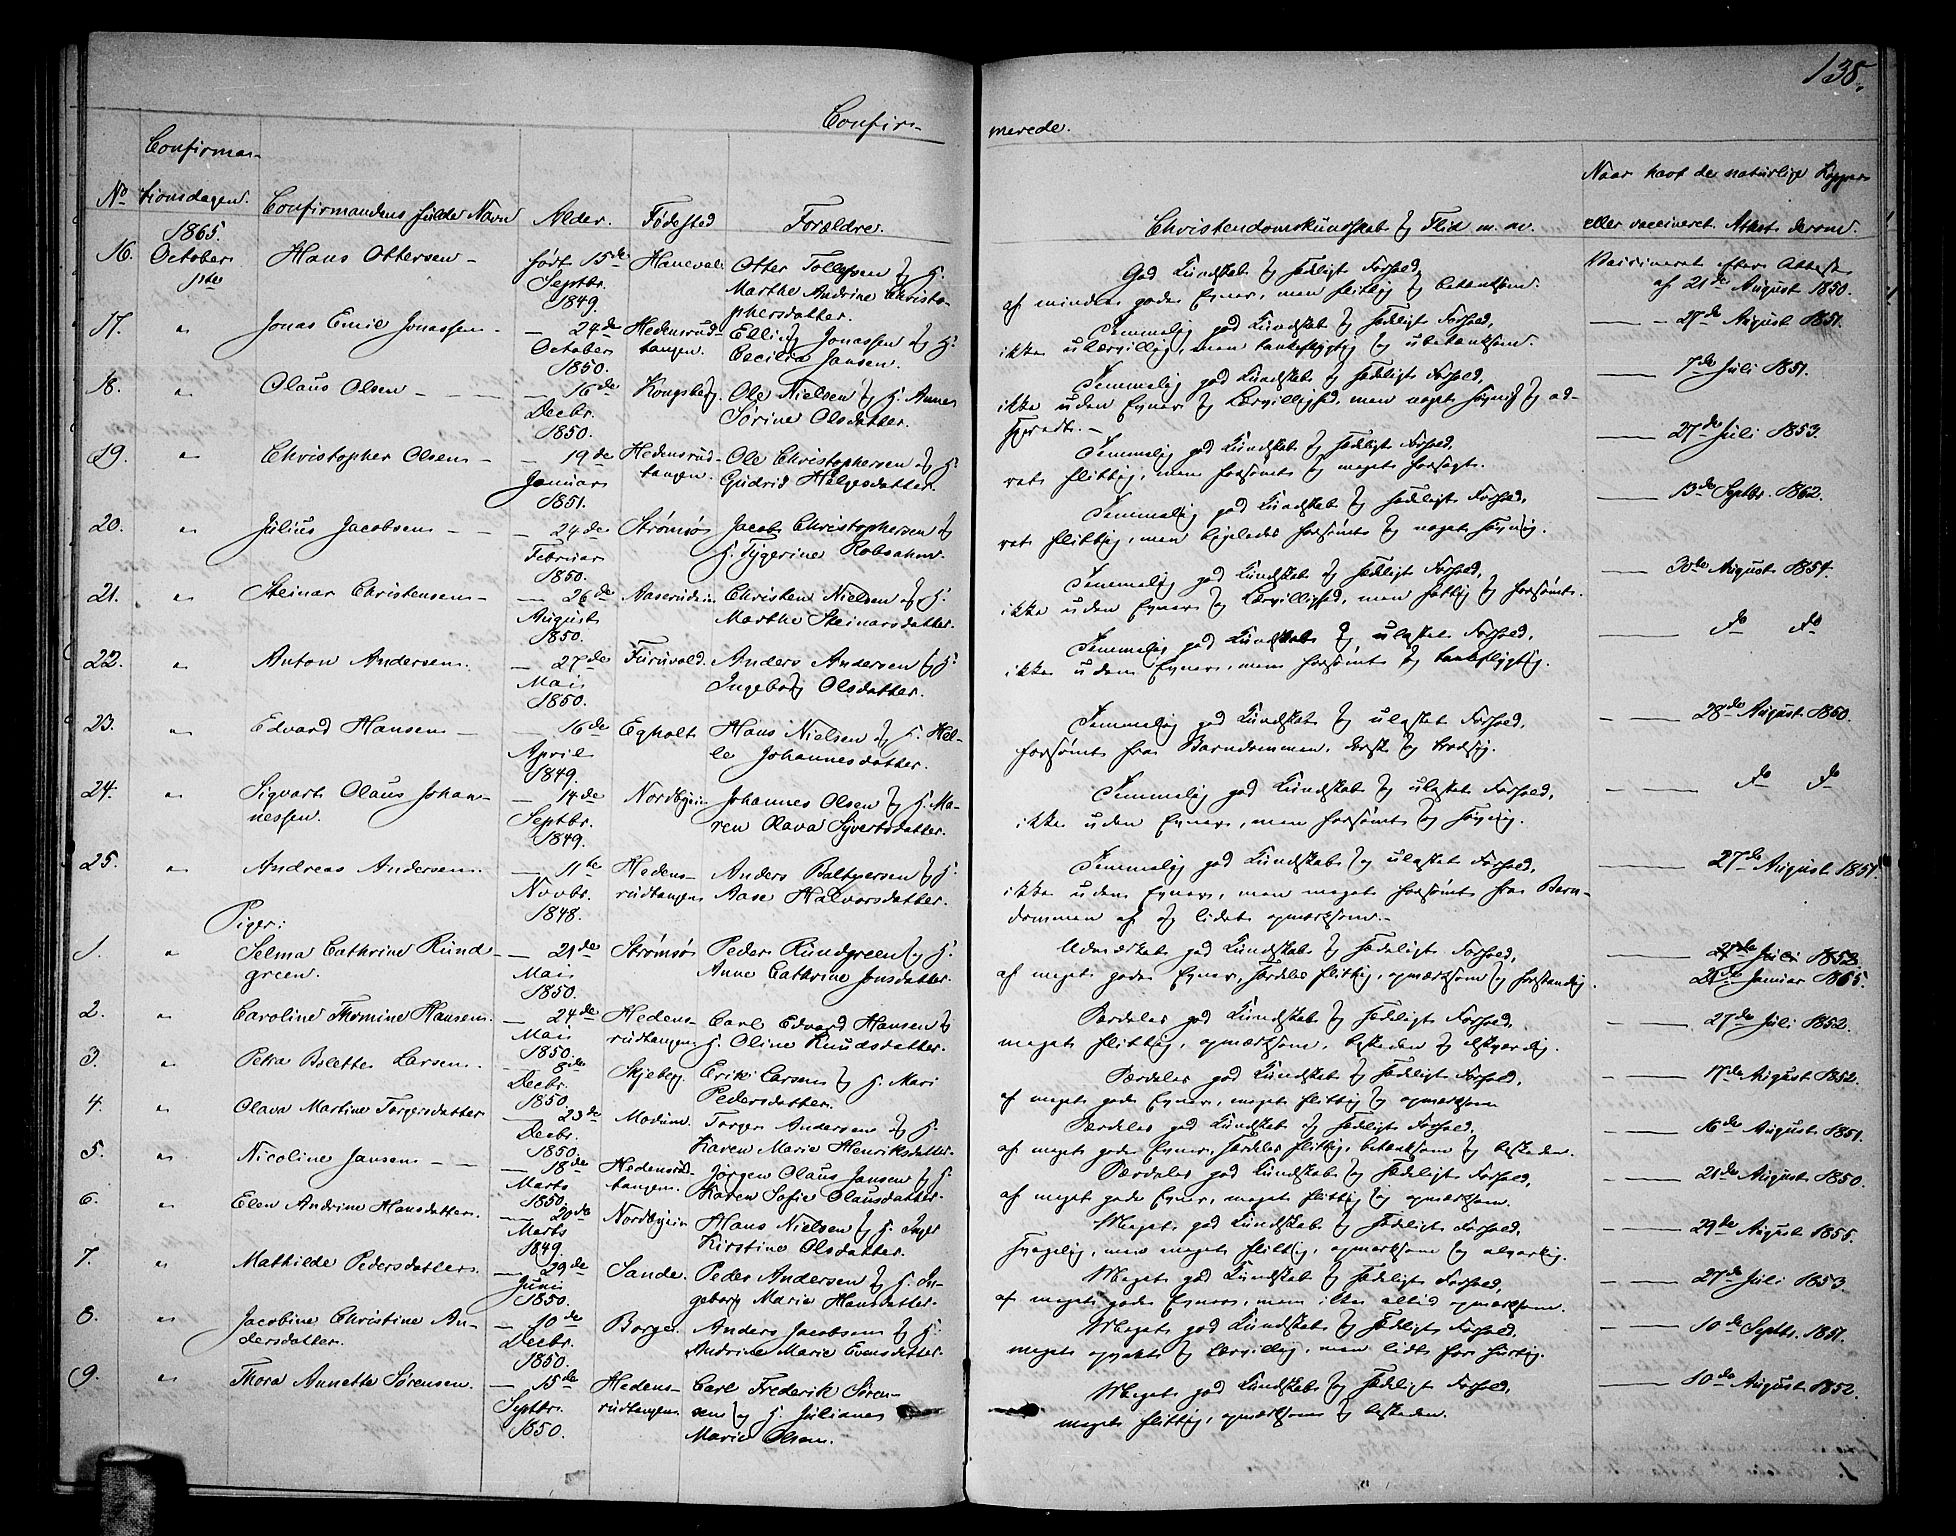 138.
Confir-
merede.
Confirma-
No tionsdagen. Confirmandens fulde Navn Alder. Fødested Forældre. Christendomskundskab og Flid m. m. Naar havt de naturlige Kopper
eller vaccineret. Attest derom.
1865.
16. October 1ste Hans Ottersen - født 15de Septbr. 1849. Haneval Otter Tollefsen og H. Marthe Andrine Christophersdatter.
God Kundskab og sædeligt Forhold,
af mindre gode Evner, men flittig og betænksom.
Vaccineret efter Attest
af 21de August 1850.
17. " Jonas Emil Jonassen - - 24de October 1850. Hedensrud-
tangen. Elling Jonassen og H.
Cecilia Jansen.
Temmelig god Kundskab og sædeligt Forhold,
ikke ulærvillig, men tankeflygtig og ubetænksom.
- 27de August 1851.
18. " Olaus Olsen - - - - 16de Decbr. 1850. Kongsberg. Ole Nielsen og H. Anne
Sørine Olsdatter.
Temmelig god Kundskab og sædeligt Forhold,
ikke uden Evner og Lærvillighed, men noget søvnig og ad-
spredt. -
- 7de Juli 1851.
19. " Christopher Olsen - - 19de Januar 1851. Hedensrud-
tangen. Ole Christophersen og H.
Gudrid Helgesdatter.
Temmelig god Kundskab og sædeligt Forhold,
ret flittig, men forsømt og meget forsagt.
- 27de Juli 1853.
20. " Julius Jacobsen - - - 24de Februar 1850. Strømsø Jacob Christophersen og
H. Sygerine Robsahm.
Temmelig god Kundskab og sædeligt Forhold,
ret flittig, men ligeledes forsømt og noget søvnig.
- 13de Septbr. 1862.
21. " Steinar Christensen - - 26de August 1850. Aaserudein Christen Nielsen og H.
Marthe Steinarsdatter.
Temmelig god Kundskab og sædeligt Forhold,
ikke uden Evner og Lærvillighed, men forsømt.
- 30te August 1851.
22. " Anton Andersen. - 27de Mai 1850. Furuvald. Anders Andersen og H.
Ingeborg Olsdatter.
Temmelig god Kundskab og ulastet Forhold,
ikke uden Evner, men forsømt og tankeflygtig.
- do do
23. " Edvard Hansen - - 16de April 1849. Egholt Hans Nielsen og H. Hel-
le Johannesdatter.
Temmelig god Kundskab og ulastet Forhold,
forsømt fra Barndommen, dorsk og
- 28de August 1860.
24. " Sigvart Olaus Johan-
nessen. - 14de Septbr. 1849. Nordbyein Johannes Olsen og H. Ma-
ren Olava Syvertsdatter.
Temmelig god Kundskab og ulastet Forhold,
ikke uden Evner, men forsømt og søvnig.
- do do
25. " Andreas Andersen. - 11te Novbr. 1848. Hedens-
rudtangen Anders Baltzersen og H.
Aase Halvorsdatter.
Temmelig god Kundskab og ulastet Forhold,
ikke uden Evner, men meget forsømt fra Barn-
dommen af og lidet opmærksom. -
- 27de August 1851.
Piger:
1. " Selma Cathrine Rund-
green. - 21de Mai 1850. Strømsø Peder Rundgreen og H.
Anne Cathrine Jonsdatter.
Udmærket god Kundskab og sædeligt Forhold,
af meget gode Evner, særdeles flittig, opmærksom og forstandig.
- Juli 1852
Januar 1865.
2. " Caroline Thomine Hansen. - 24de Mai 1850. Hedens-
rudtangen. Carl Edvard Hansen og
H. Oline Knudsdatter.
Særdeles god Kundskab og sædeligt Forhold,
meget flittig, opmærksom, beskeden og elskværdig.
- 27de Juli 1852.
3. " Petra Bolette Larsen. - 8de Decbr. 1850. Skjeberg. Erik Larsen og H. Mari
Pedersdatter.
Særdeles god Kundskab og sædeligt Forhold,
af meget gode Evner, meget flittig og opmærksom
- 17de August 1852.
4. " Olava Martine Torgersdatter - 23de Decbr. 1850. Modum. Torger Andersen og H.
Karen Marie Henriksdatter.
Særdeles god Kundskab og sædeligt Forhold,
af meget gode Evner, særdeles flittig, betænksom og beskeden.
- 16de August 1851.
5. " Nicoline Jansen - - - 18de Marts 1850. Hedensrud-
tangen. Jörgen Olaus Jansen og H.
Karen Sofie Olausdatter.
Særdeles god Kundskab og sædeligt Forhold,
af meget gode Evner, meget flittig og opmærksom.
- 21de August 1850.
6. " Elen Andrine Hansdatter. - 20de Marts 1849. Nordbyein Hans Nielsen og H. Inger
Kirstine Olsdatter.
Meget god Kundskab og sædeligt Forhold,
svagelig, men meget flittig, opmærksom og alvorlig.
- 29de August 1855.
7. " Mathilde Pedersdatter. - 29de Juni 1850. Sande. Peder Andersen og H. In-
geborg Marie Hansdatter.
Meget god Kundskab og sædeligt Forhold,
af meget gode Evner, men ikke altid opmærksom.
- 27de Juli 1853.
8. " Jacobine Christine An-
dersdatter. - 10de Decbr. 1850. Borge. Anders Jacobsen og H.
Andrine Marie Evensdatter.
Meget god Kundskab og sædeligt Forhold,
meget opvakt og lærvillig, men lidt for hurtig.
- 10de Septbr. 1851.
9. " Thora Annette Sørensen. - 15de Septbr. 1850. Hedens-
rudtangen. Carl Frederik Søren-
sen og H. Juliane
Marie Olsen.
Meget god Kundskab og sædeligt Forhold,
meget flittig, opmærksom og beskeden.
- 10de August 1852.